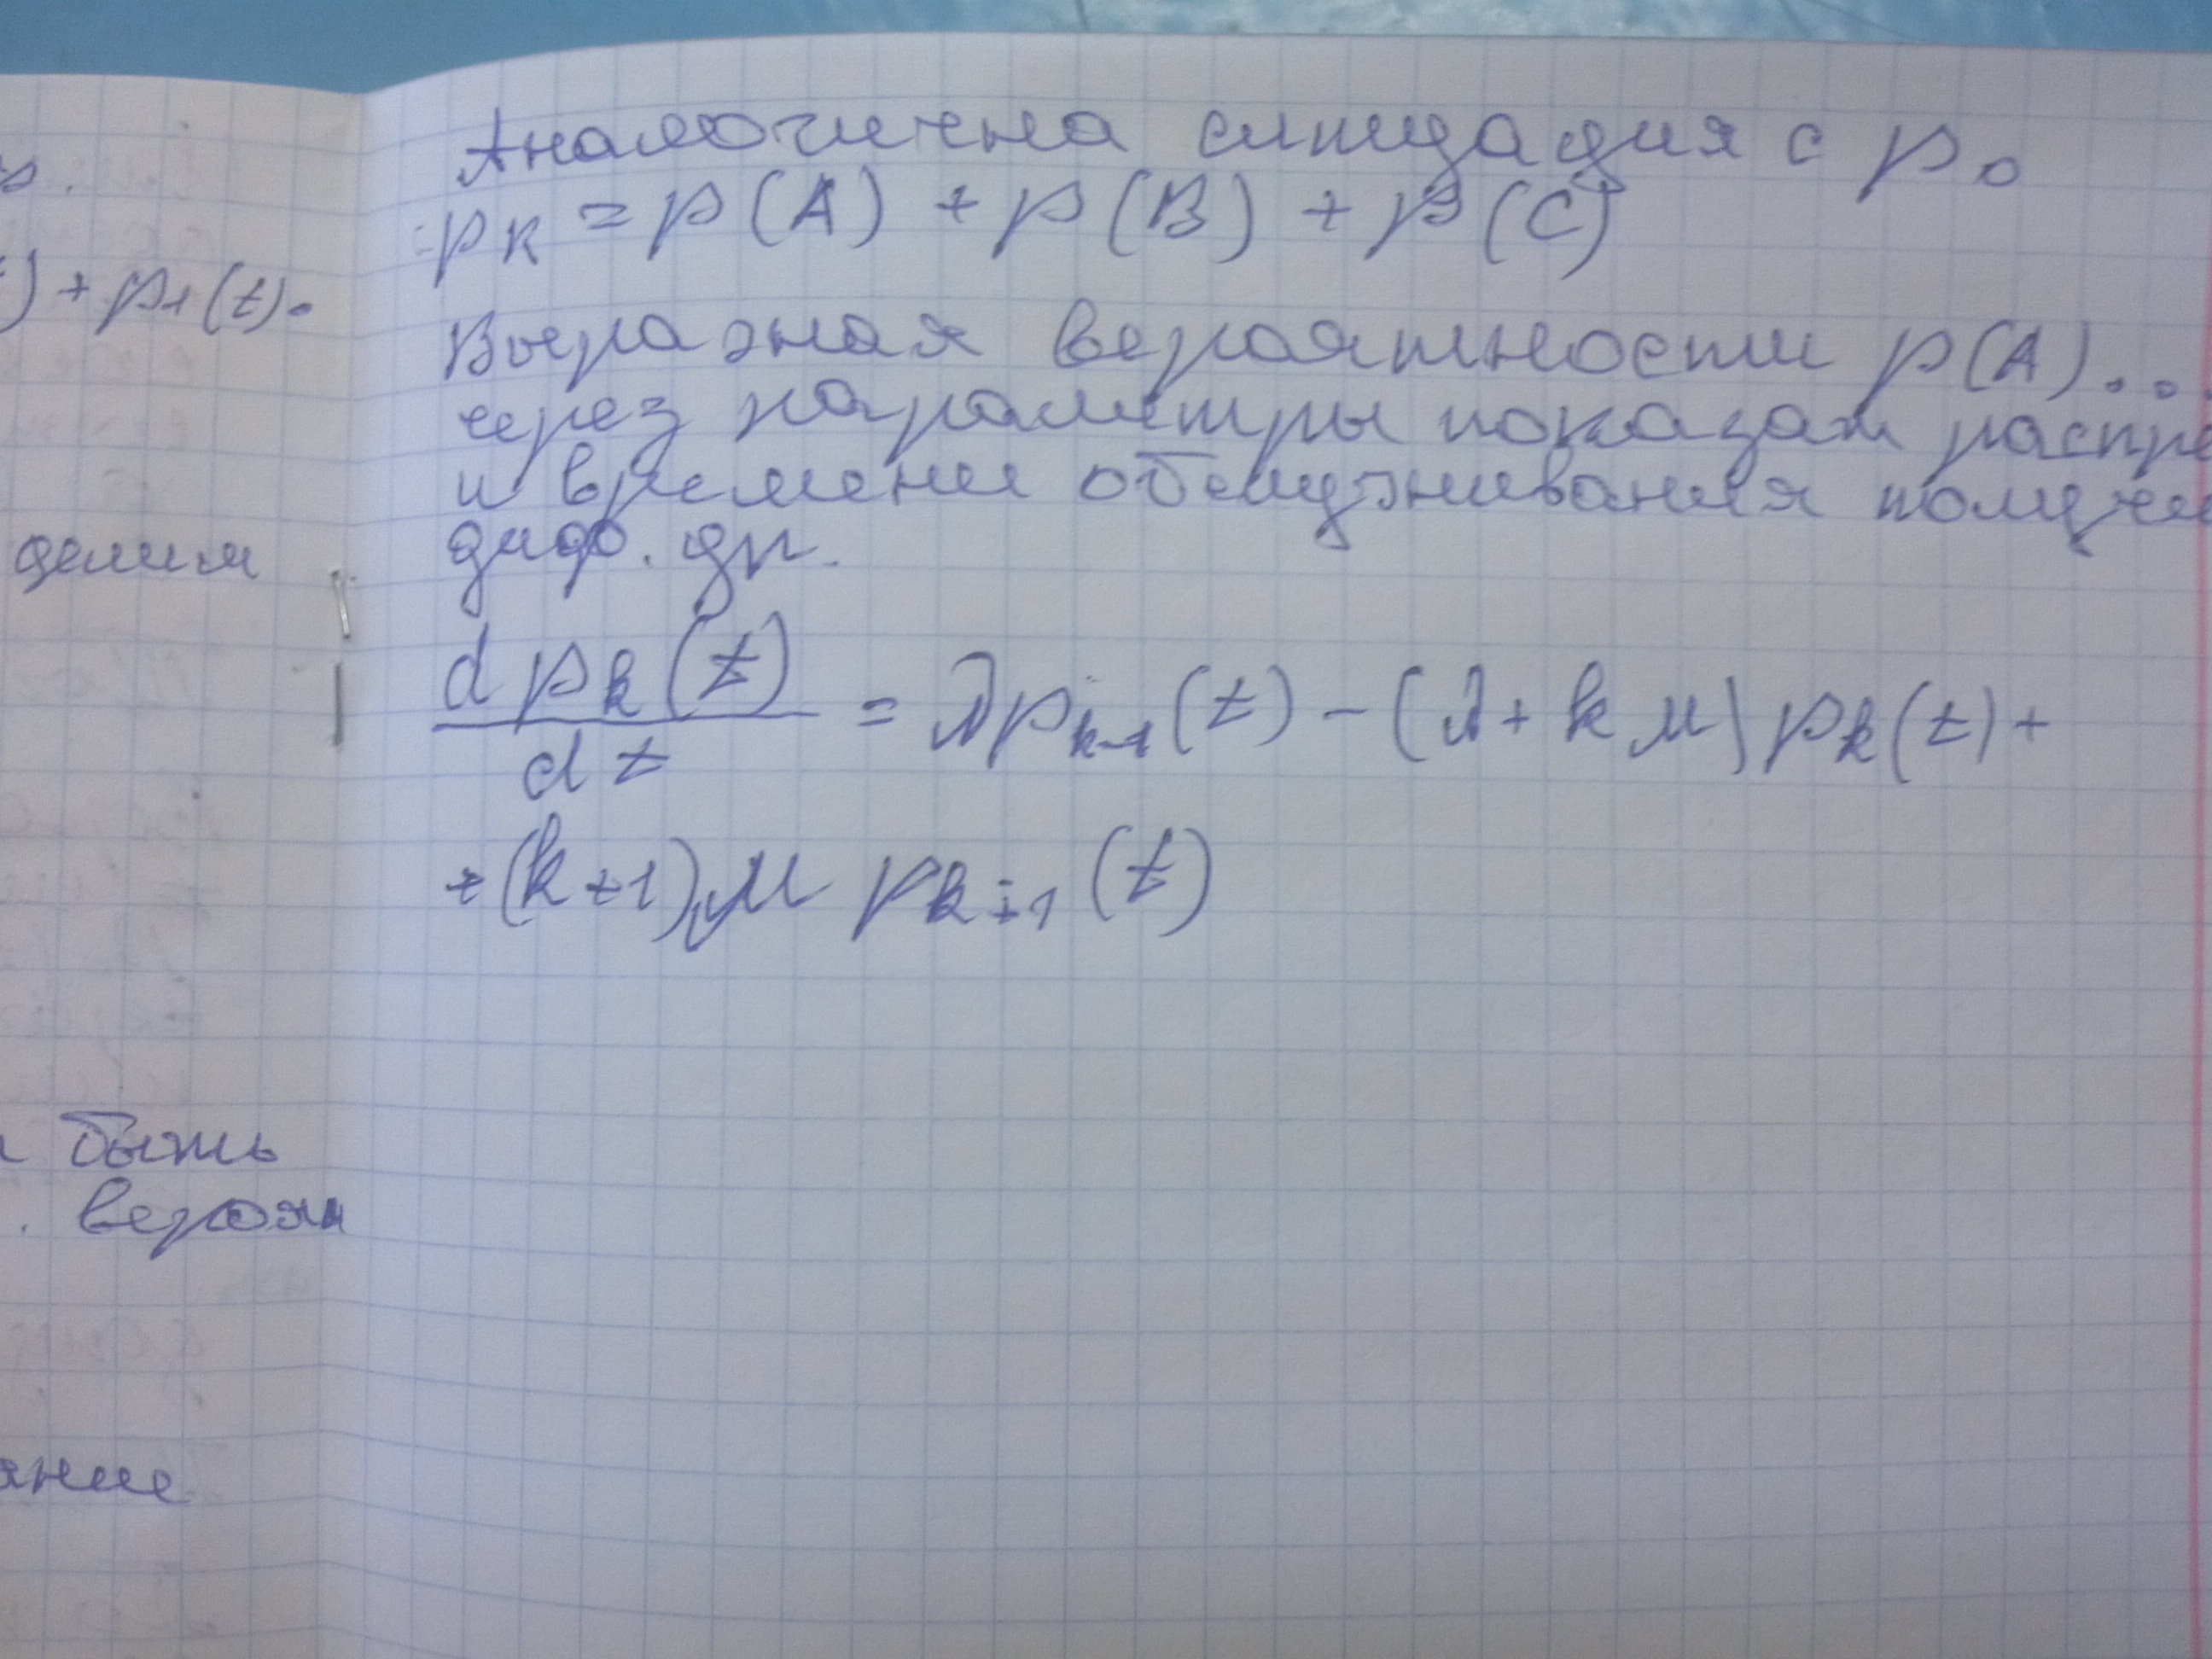 ) + p₁(t).
делим
быть
. вероятн
яние
Аналогична ситуация с p₀
p_k = p(A) + p(B) + p(C)
Выражая вероятности p(A)...
через параметры показат распре
и времени обслуживания получе
диф. ур.
dp_k(t)/dt = λp_{k-1}(t) - (λ + kμ) p_k(t) +
+ (k+1)μ p_{k+1}(t)